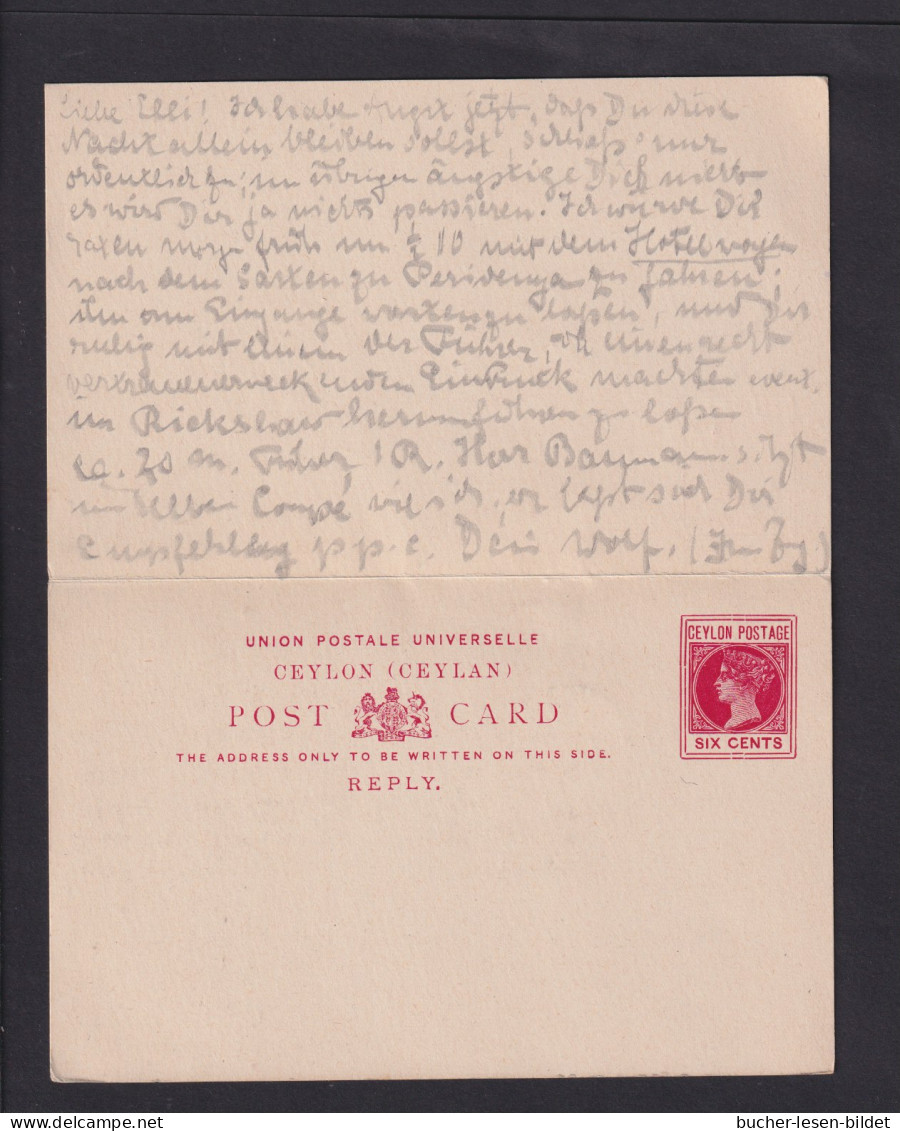 Liebe Elli! Ich habe Angst jetzt, daß Du diese
Nacht allein bleiben sollst, schließ nur
ordentlich zu; im übrigen ängstige Dich nicht
es wird Dir ja nichts passieren. Ich würde Dir
raten morgen früh um ½ 10 mit dem Hotelwagen
nach dem Garten zu Peridenya zu fahren;
ihn am Eingange warten zu laßen, und Dich
ruhig mit einem der Führer, die einen recht
vertrauenerweckenden Eindruck machten event.
im Rickshaw herumfahren zu laßen
ca. 20 M. Führer 1 R. Herr Baumann sitzt
im selben Coupé wie ich, er läßt sich Dir
p.p.c. Dein Wolf. (Im Zug)
UNION POSTALE UNIVERSELLE
CEYLON (CEYLAN)
POST CARD
THE ADDRESS ONLY TO BE WRITTEN ON THIS SIDE.
REPLY.
CEYLON POSTAGE
SIX CENTS
bucher-lesen-bildet